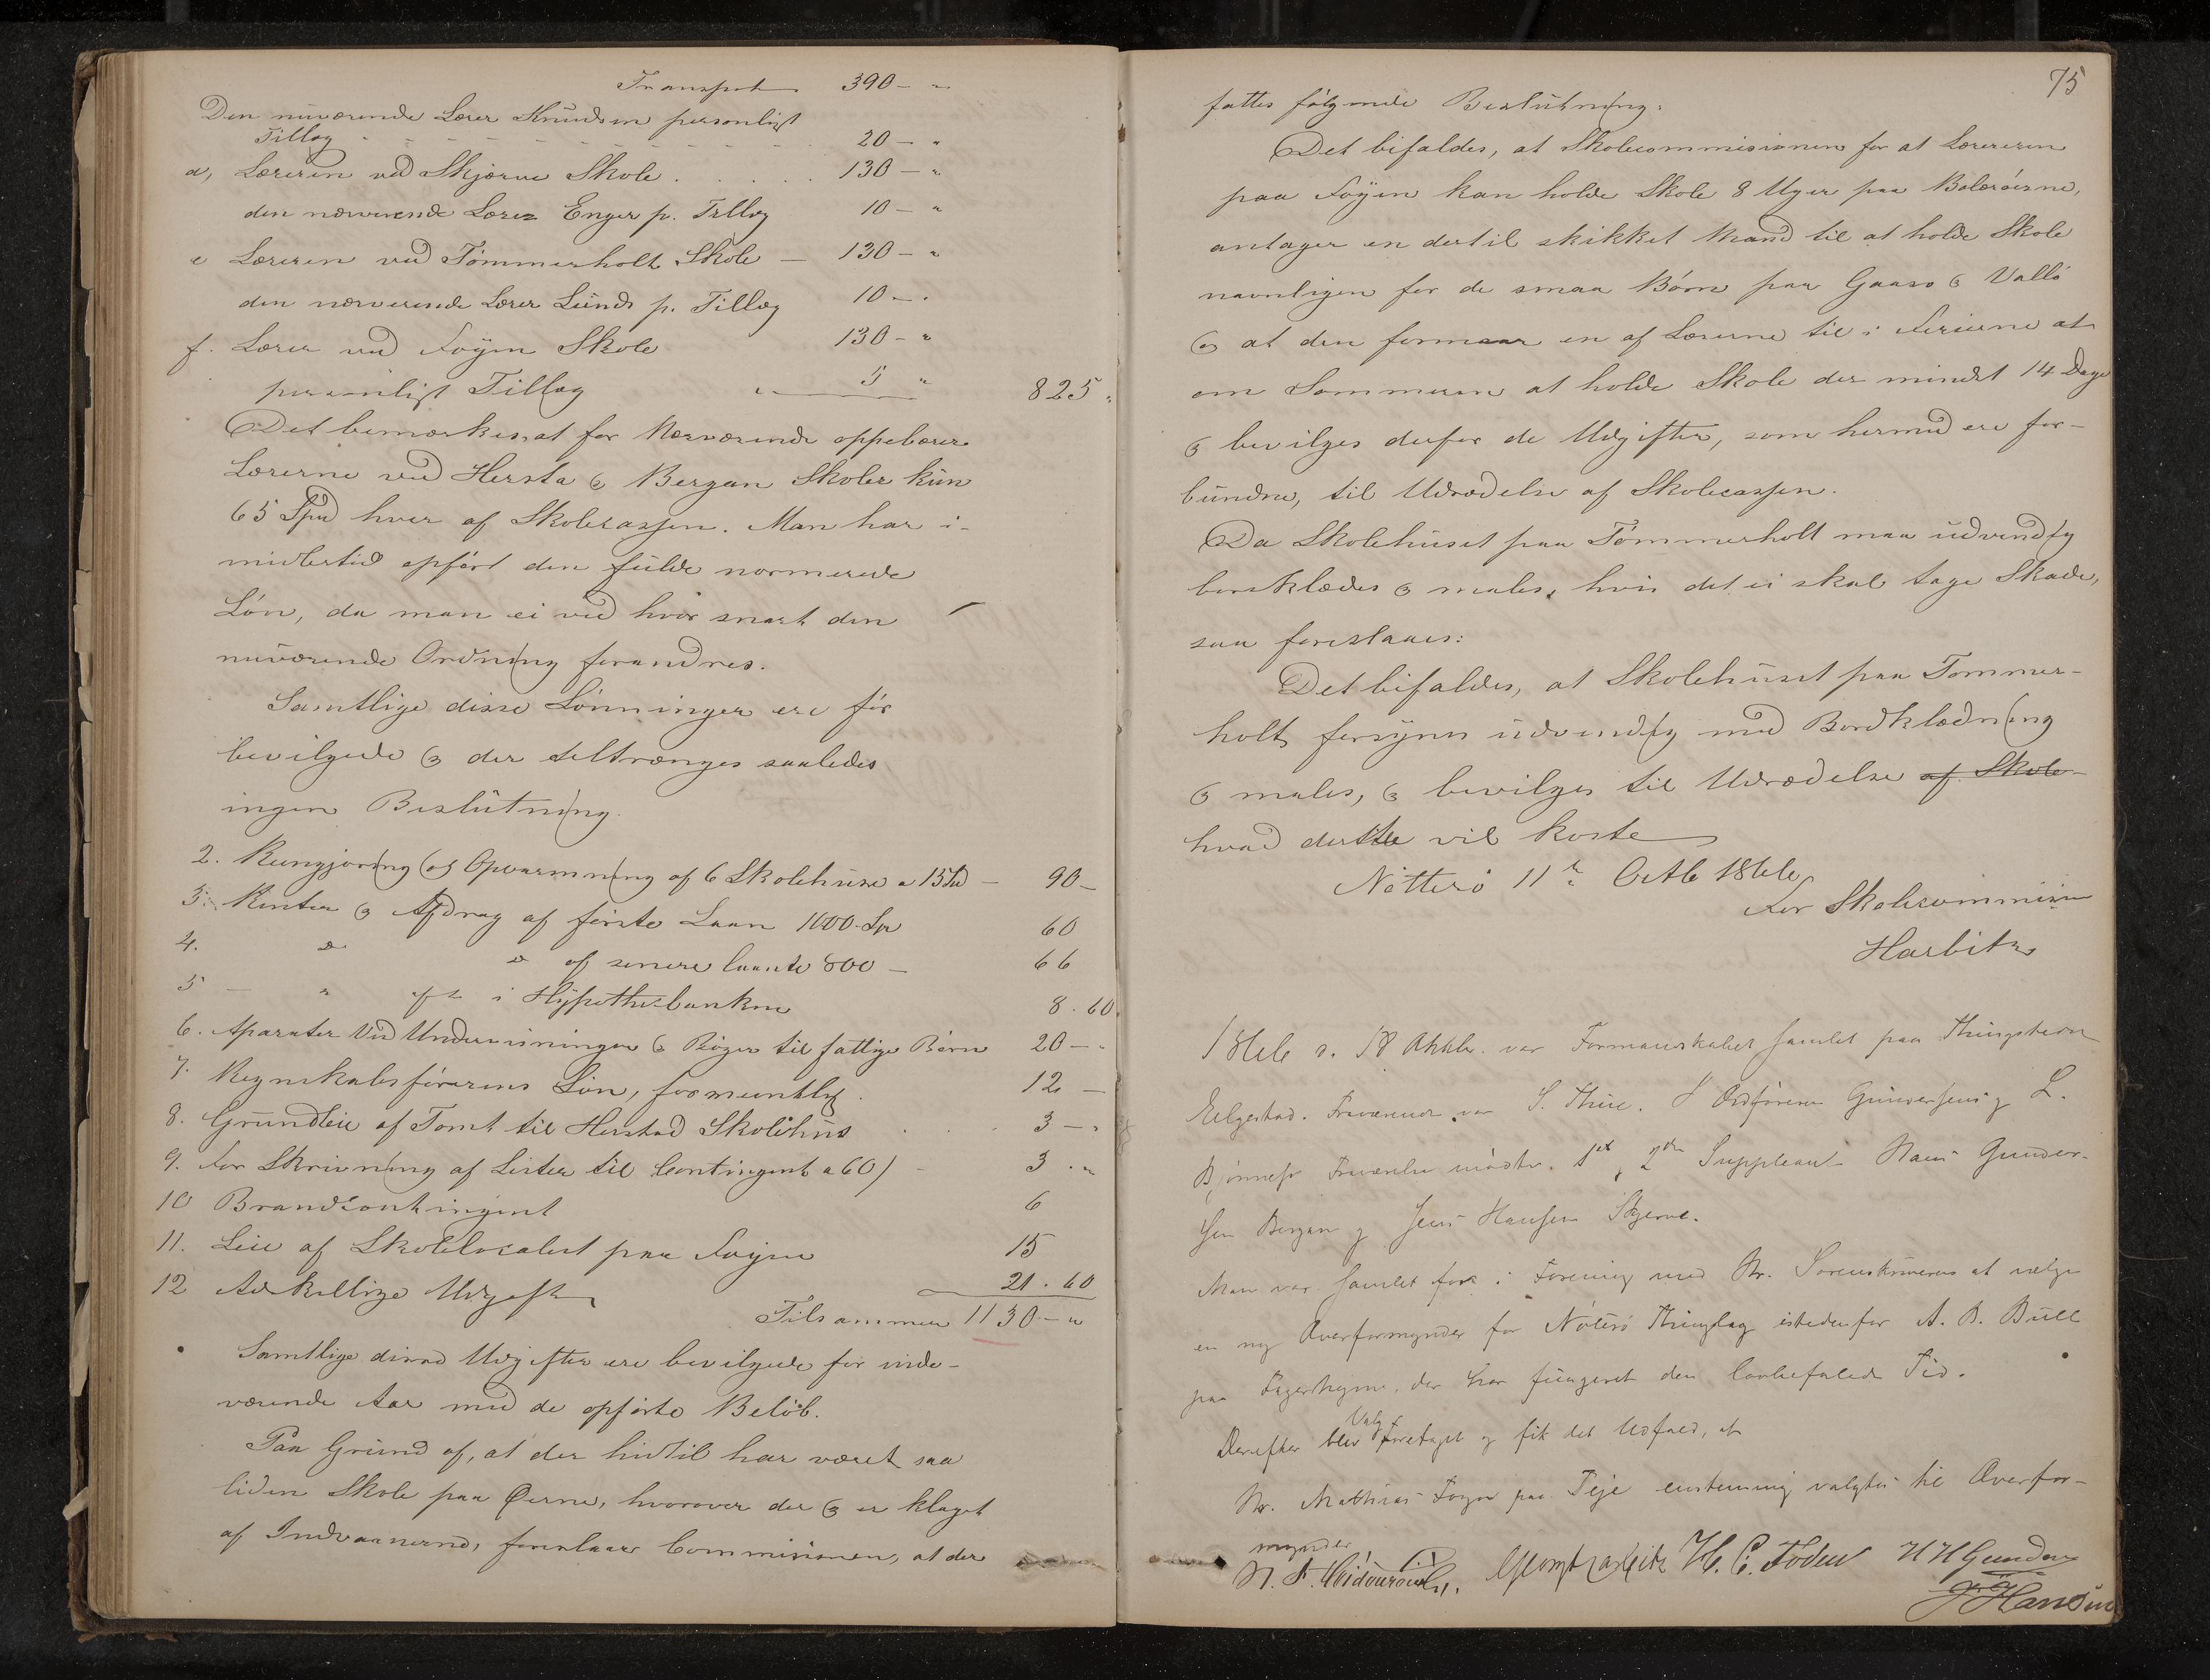 Transport 390 - "
Den nuværende Lærer Knudsen personligt
Tillæg - - - - - - - - - 20 - "
d, Læreren ved Skjærve Skole . . . . . 130 - "
den nærværende Lærer Enger p. Tillæg 10 - "
e Læreren ved Tømmerholt Skole - 130 - "
den nærværende Lærer Lunds p. Tillæg 10 - "
f. Lærer ved Føyen Skole 130 - "
personligt Tillæg " 5 " 825 "
Det bemærkes, at for Nærværende oppebærer
Lærerne ved Hersta & Bergan Skoler kun
65 Spd hver af Skolecassen. Man har i-
midlertid opført den fulde normerede
Løn, da man ei ved hvor snart den
nuværende Ordning forandres.
Samtlige disse Lønninger ere før
bevilgede & der tiltrænges saaledes
ingen Beslutning.
2. Rengjøring og Opvarmning af 6 Skolehuse a 15 Spd - 90 -
3. Renter & Afdrag af første Laan 1000 Spd 60
4. do do af senere laante 800 - 66
5 - " i Hypothekbanken 8 . 60
6. Aparater ved Undervisningen & Bøger til fattige Børn 20 - "
7. Regnskabsførerens Løn, formeentlig . 12 -
8. Grundleie af Tomt til Herstad Skolehus . . . 3 - "
9. For Skrivning af Lister til Contingent a 60 / - 3 . "
10 Brandcontingent 6
11. Leie af Skolelocalet paa Føyen 15
12 Adskillige Udgifter 21 . 60
Tilsammen 1130 - "
Samtlige disse Udgifter ere bevilgede for inde-
værende Aar med de opførte Beløb.
Paa Grund af, at der hidtil har været saa
liden Skole paa Øerne, hvorover der & er klaget
af Indvaanerne, foreslaaer Commissionen, at der
75
fattes følgende Beslutning:
Det bifaldes, at Skolecommissionen for at Læreren
paa Føyen kan holde Skole 8 Uger paa Bolærøerne,
antager en dertil skikket Mand til at holde Skole
navnligen for de smaa Børn paa Gaasø & Vallø
& at den formaar en af Lærerne til i Ferierne at
om Sommeren at holde Skole der mindst 14 Dage
& bevilges derfor de Udgifter, som hermed ere for-
bundne, til Udredelse af Skolecassen.
Da Skolehuset paa Tømmerholt maa udvendig
bordklædes & males, hvis det ei skal tage Skade,
saa foreslaaes:
Det bifaldes, at Skolehuset paa Tømmer-
holt forsynes udvendig med Bordklædning
& males, & bevilges til Udredelse af Skole-
hvad dette vil koste
Nøtterø 11te Octb 1866
For Skolecommissionen
Harbitz
1866 d. 18 Oktbr. var Formandskabet samlet paa Thingstedet
Elgestad. Fraværende var S. Thue. I Ordføreren Gundersens & L.
Bjønnes Fraværelse mødte 1st & 2den Suppleant Hans Gunder-
sen Bergan og Jens Hansen Skjerve.
Man var samlet for i Forening med Hr. Sorenskriveren at vælge
en ny Overformynder for Nøterø Thinglag istedenfor A. B. Bull
paa Fagerheim, der har fungeret den lovbefalede Tid.
Derefter blev Valg foretaget og fik det Udfald, at
Hr. Mathias Føyn paa Teje enstemmig valgtes til Overfor-
mynder
H. C. Foden H H Gundersen
J. Hansen